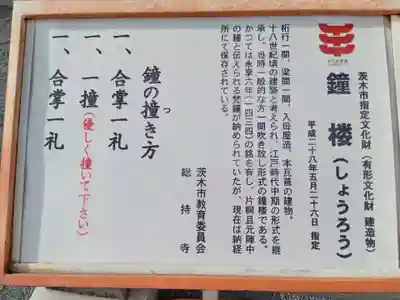 茨木市指定文化財(有形文化財 建造物)
鐘楼(しょうろう)
平成二十八年五月二十六日 指定
桁行一間、梁間一間、入母屋造、本瓦葺の建物。
十八世紀頃の建築と考えられ、江戸時代中期の形式を継
承し、当時一般的な方一間吹き放し形式の鐘楼である。
かつては永享六年(一四三四)の銘を有し、片桐且元陣中
の鐘と伝えられる梵鐘が納められていたが、現在は納経
所にて保存されている。
茨木市教育委員会
総持寺
鐘の撞き方
つ
一、合掌一礼
一、一撞(優しく撞いて下さい)
一、合掌一礼